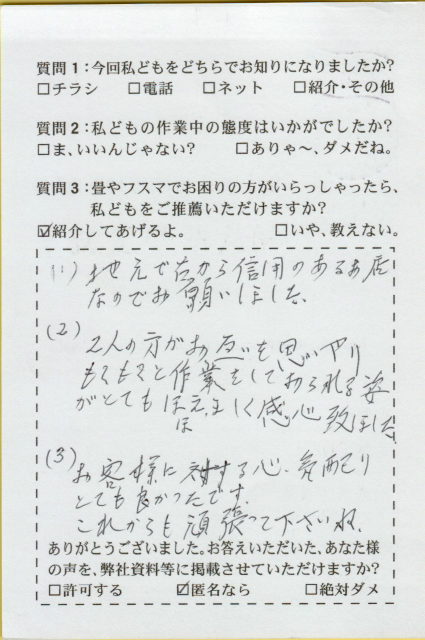 質問1:今回私どもをどちらでお知りになりましたか?
□チラシ □電話 □ネット □紹介・その他
質問2:私どもの作業中の態度はいかがでしたか?
□ま、いいんじゃない? □ありゃ〜、ダメだね。
質問3:畳やフスマでお困りの方がいらっしゃったら、
私どもをご推薦いただけますか?
☑紹介してあげるよ。 □いや、教えない。
(1) 地元で古から信用のあるお店
なのでお願いしました。
(2) 2人の方がお互いを思いやり
もくもくと作業をしておられる姿
がとてもほほえましく感心致しました
(3) お客様に対する心、気配り
とても良かったです。
これからも頑張って下さいね。
ありがとうございました。お答えいただいた、あなた様
の声を、弊社資料等に掲載させていただけますか?
□許可する ☑匿名なら □絶対ダメ